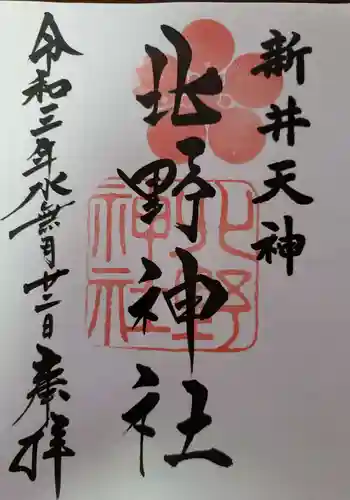 新井天神
北野神社
令和三年水無月廿二日
奉拝
北野
神社